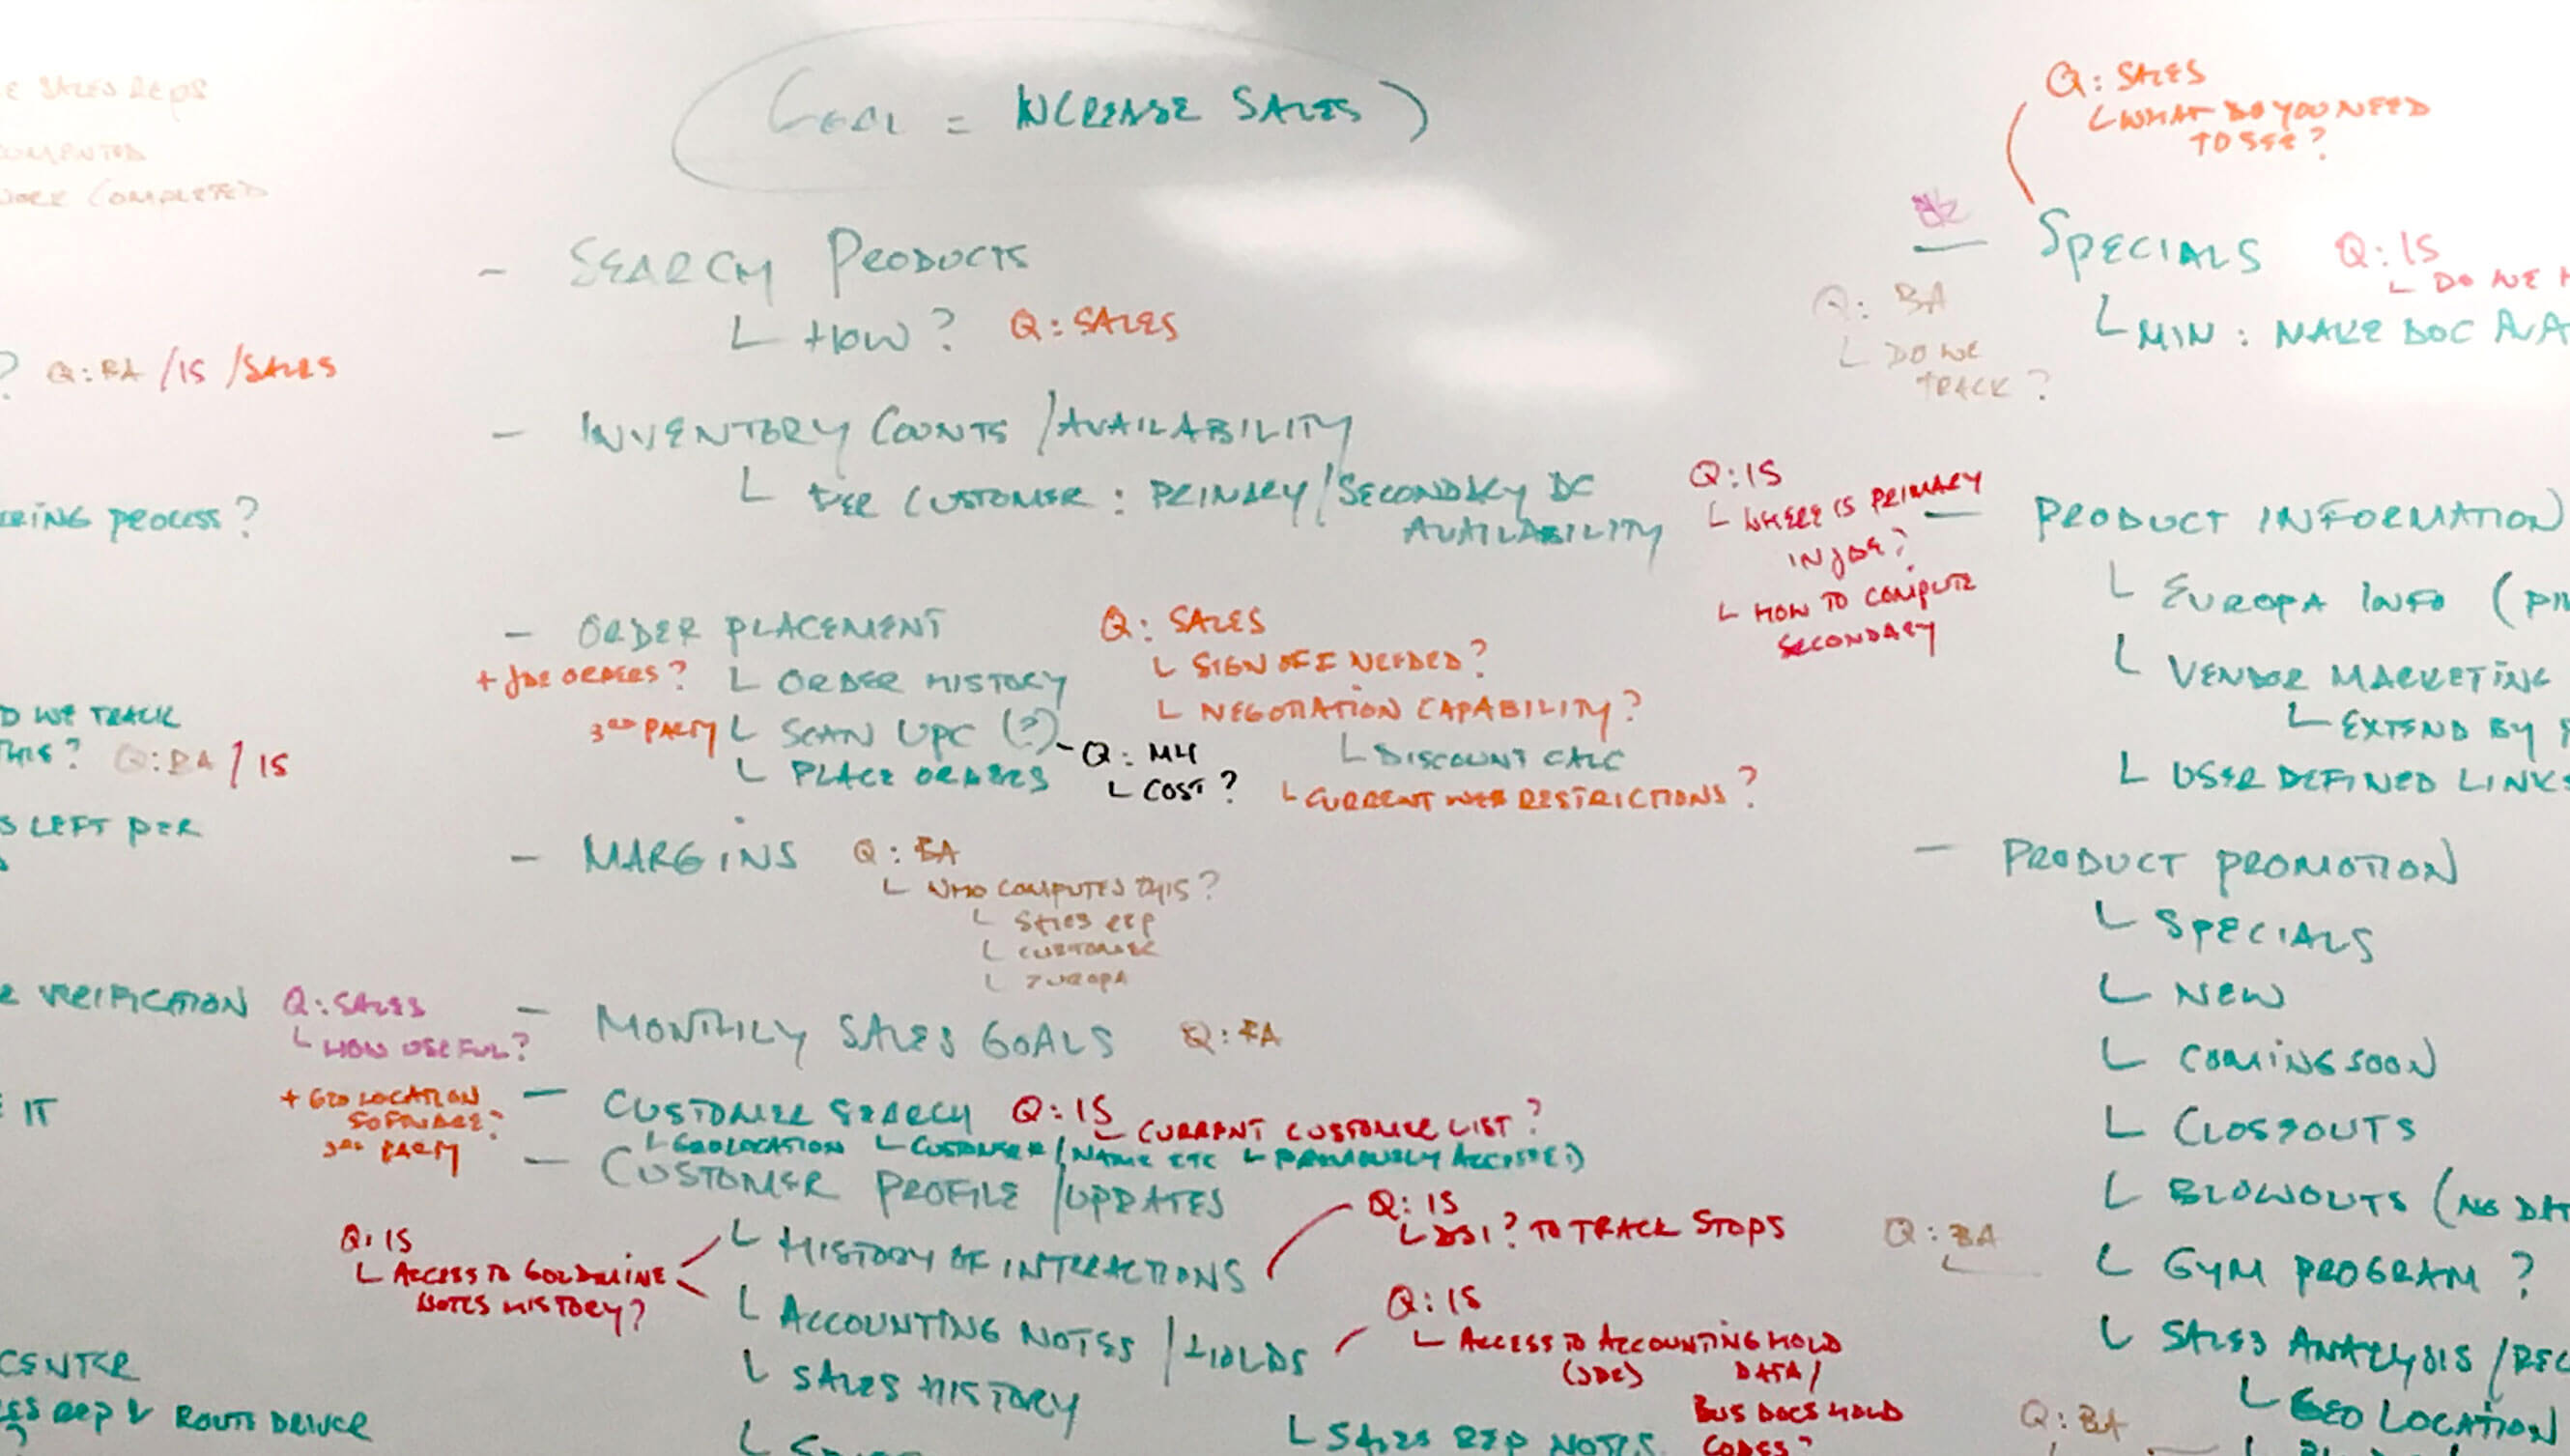 SALES REPS
COMPLETED
? Q: BA / IS / SALES
PROCESS?
WE TRACK
THIS? Q: BA / IS
LEFT PER
VERIFICATION Q: SALES
└ HOW USEFUL?
IT
CENTER
REP & ROUTE DRIVER
GOAL = INCREASE SALES
- SEARCH PRODUCTS
└ HOW? Q: SALES
- INVENTORY COUNTS / AVAILABILITY
└ PER CUSTOMER: PRIMARY / SECONDARY DC
AVAILABILITY
Q: IS
└ WHERE IS PRIMARY
IN JDE?
└ HOW TO COMPUTE
SECONDARY
- ORDER PLACEMENT
+ JDE ORDERS? └ ORDER HISTORY
3RD PARTY └ SCAN UPC (?) - Q: MH
└ COST?
└ PLACE ORDERS
Q: SALES
└ SIGN OFF NEEDED?
└ NEGOTIATION CAPABILITY?
└ DISCOUNT CALC
└ CURRENT WEB RESTRICTIONS?
- MARGINS Q: BA
└ WHO COMPUTES THIS?
└ SALES REP
└ CUSTOMER
└ EUROPA
- MONTHLY SALES GOALS Q: BA
+ GEO LOCATION
SOFTWARE?
3RD PARTY
- CUSTOMER SEARCH Q: IS
└ CURRENT CUSTOMER LIST?
└ GEOLOCATION └ CUSTOMER / NAME ETC └ PREVIOUSLY ACCESSED
- CUSTOMER PROFILE / UPDATES
Q: IS
└ ACCESS TO GOLDMINE
NOTES HISTORY?
└ HISTORY OF INTERACTIONS
Q: IS
└ DSI? TO TRACK STOPS
└ ACCOUNTING NOTES / HOLDS
Q: IS
└ ACCESS TO ACCOUNTING HOLD
(JDE) DATA /
BUS DOCS HOLD
CODES?
└ SALES HISTORY
└ SALES REP NOTES
Q: SALES
└ WHAT DO YOU NEED
TO SEE?
- SPECIALS Q: IS
└ DO WE
└ MIN: MAKE DOC
Q: BA
└ DO WE
TRACK?
- PRODUCT INFORMATION
└ EUROPA INFO
└ VENDOR MARKETING
└ EXTEND BY
└ USER DEFINED LINKS
- PRODUCT PROMOTION
└ SPECIALS
└ NEW
└ COMING SOON
└ CLOSEOUTS
└ BLOWOUTS (NO
Q: BA └ GYM PROGRAM?
└ SALES ANALYSIS /
└ GEO LOCATION
Q: BA